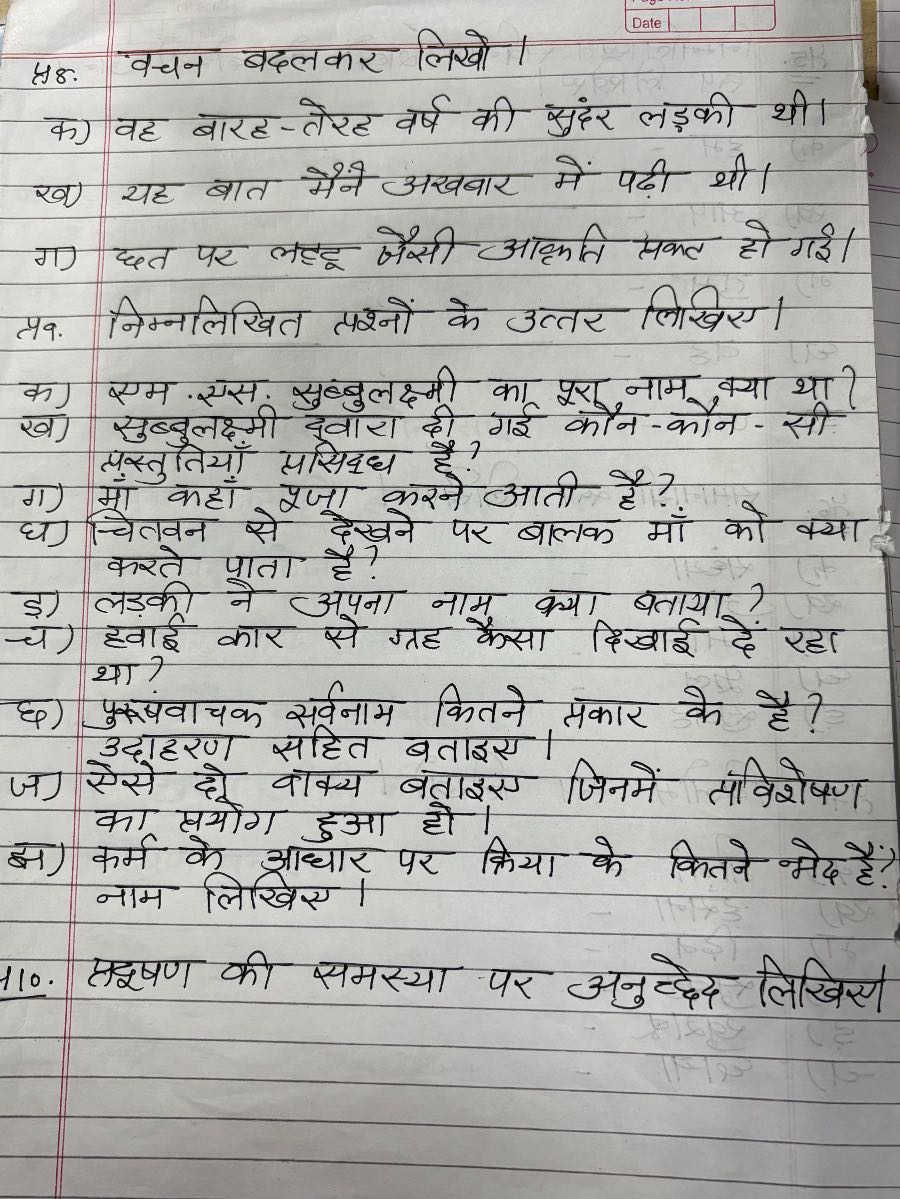 Date
प्र8. वचन बदलकर लिखो।
क) वह बारह-तेरह वर्ष की सुंदर लड़की थी।
ख) यह बात मैंने अखबार में पढ़ी थी।
ग) छत पर लट्टू जैसी आकृति प्रकट हो गई।
प्र9. निम्नलिखित प्रश्नों के उत्तर लिखिए।
क) एम.एस. सुब्बुलक्ष्मी का पूरा नाम क्या था?
ख) सुब्बुलक्ष्मी द्वारा दी गई कौन-कौन-सी
प्रस्तुतियाँ प्रसिद्ध हैं?
ग) माँ कहाँ पूजा करने आती है?
घ) चितवन से देखने पर बालक माँ को क्या
करते पाता है?
ड़) लड़की ने अपना नाम क्या बताया?
च) हवाई कार से ग्रह कैसा दिखाई दे रहा
था?
छ) पुरूषवाचक सर्वनाम कितने प्रकार के है?
उदाहरण सहित बताइए।
ज) ऐसे दो वाक्य बताइए जिनमें प्रविशेषण
का प्रयोग हुआ हो।
झ) कर्म के आधार पर क्रिया के कितने भेद हैं?
नाम लिखिए।
प्र10. प्रदूषण की समस्या पर अनुच्छेद लिखिए।